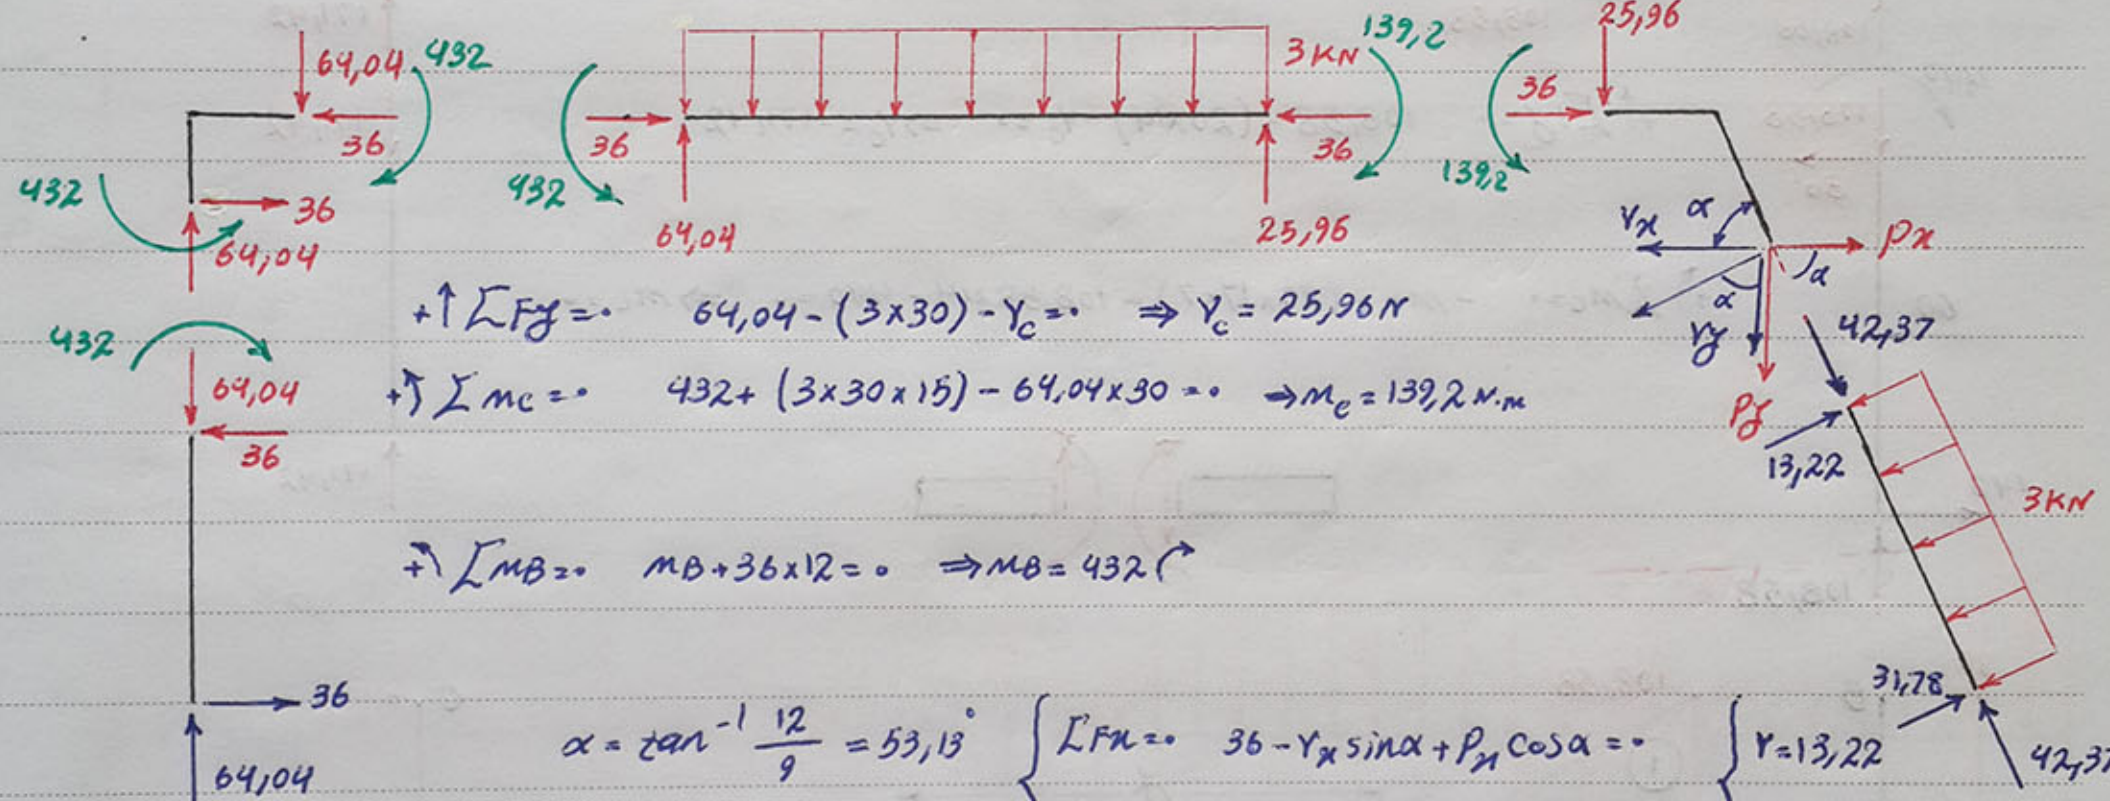 64,04 432
36
432
36
64,04
432
64,04
36
36
64,04
3KN 139,2
36
432
36
64,04
25,96
25,96
36
139,2
Vx α Px
α
α
Vy
Py
42,37
13,22
3KN
31,78
42,37
+↑ ΣFy=0 64,04-(3×30)-Vc=0 ⇒ Vc = 25,96 N
+↰ ΣMC=0 432+(3×30×15)-64,04×30=0 ⇒Mc=139,2 N.m
+↰ ΣMB=0 MB+36×12=0 ⇒MB=432↷
α = tan⁻¹ 12/9 = 53,13° { ΣFx=0 36-Vx sinα+Px cosα=0 { V=13,22